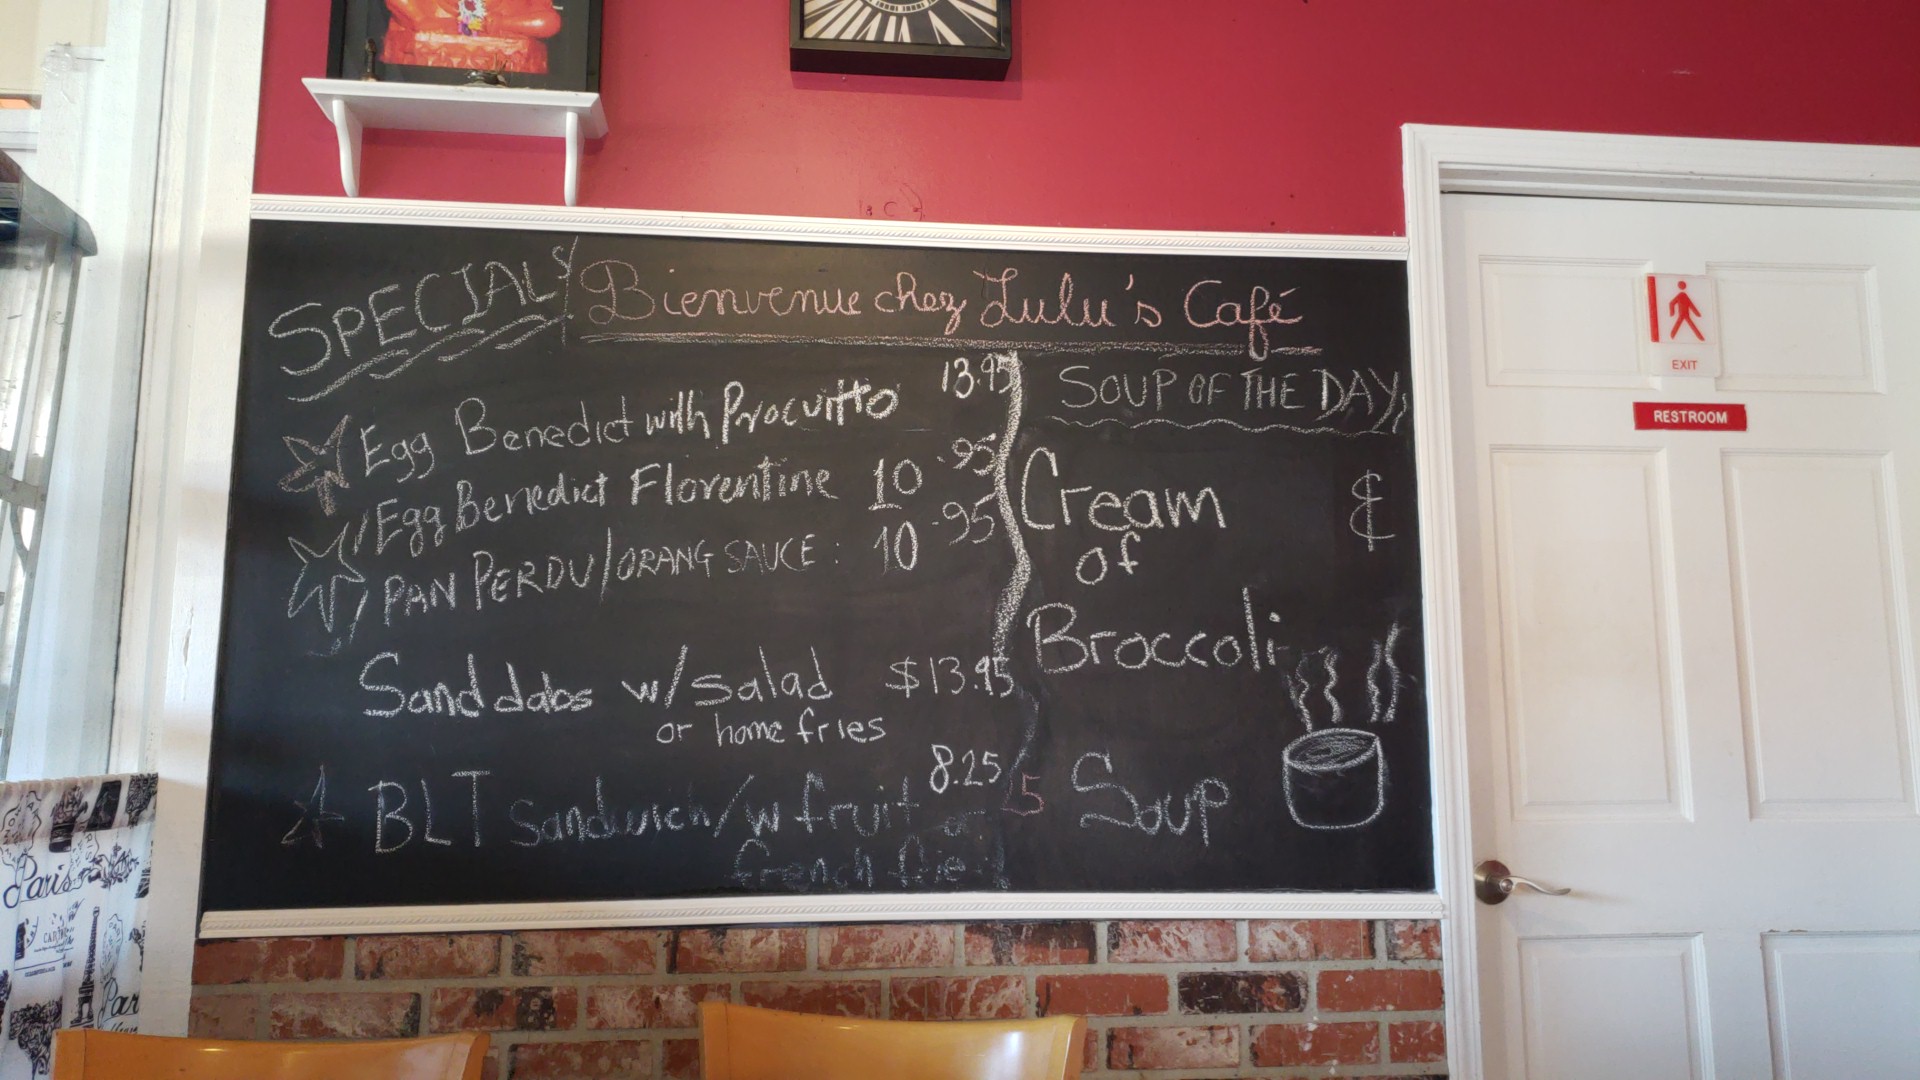 SPECIALS
Bienvenue chez Lulu's Café
Egg Benedict with Procuitto 13.95
Egg Benedict Florentine 10.95
PAN PERDU/ORANG SAUCE: 10.95
Sanddabs w/salad $13.95
or home fries
BLT Sandwich/w fruit 8.25
french frie
SOUP OF THE DAY
Cream
of
Broccoli
Soup
EXIT
RESTROOM
Paris